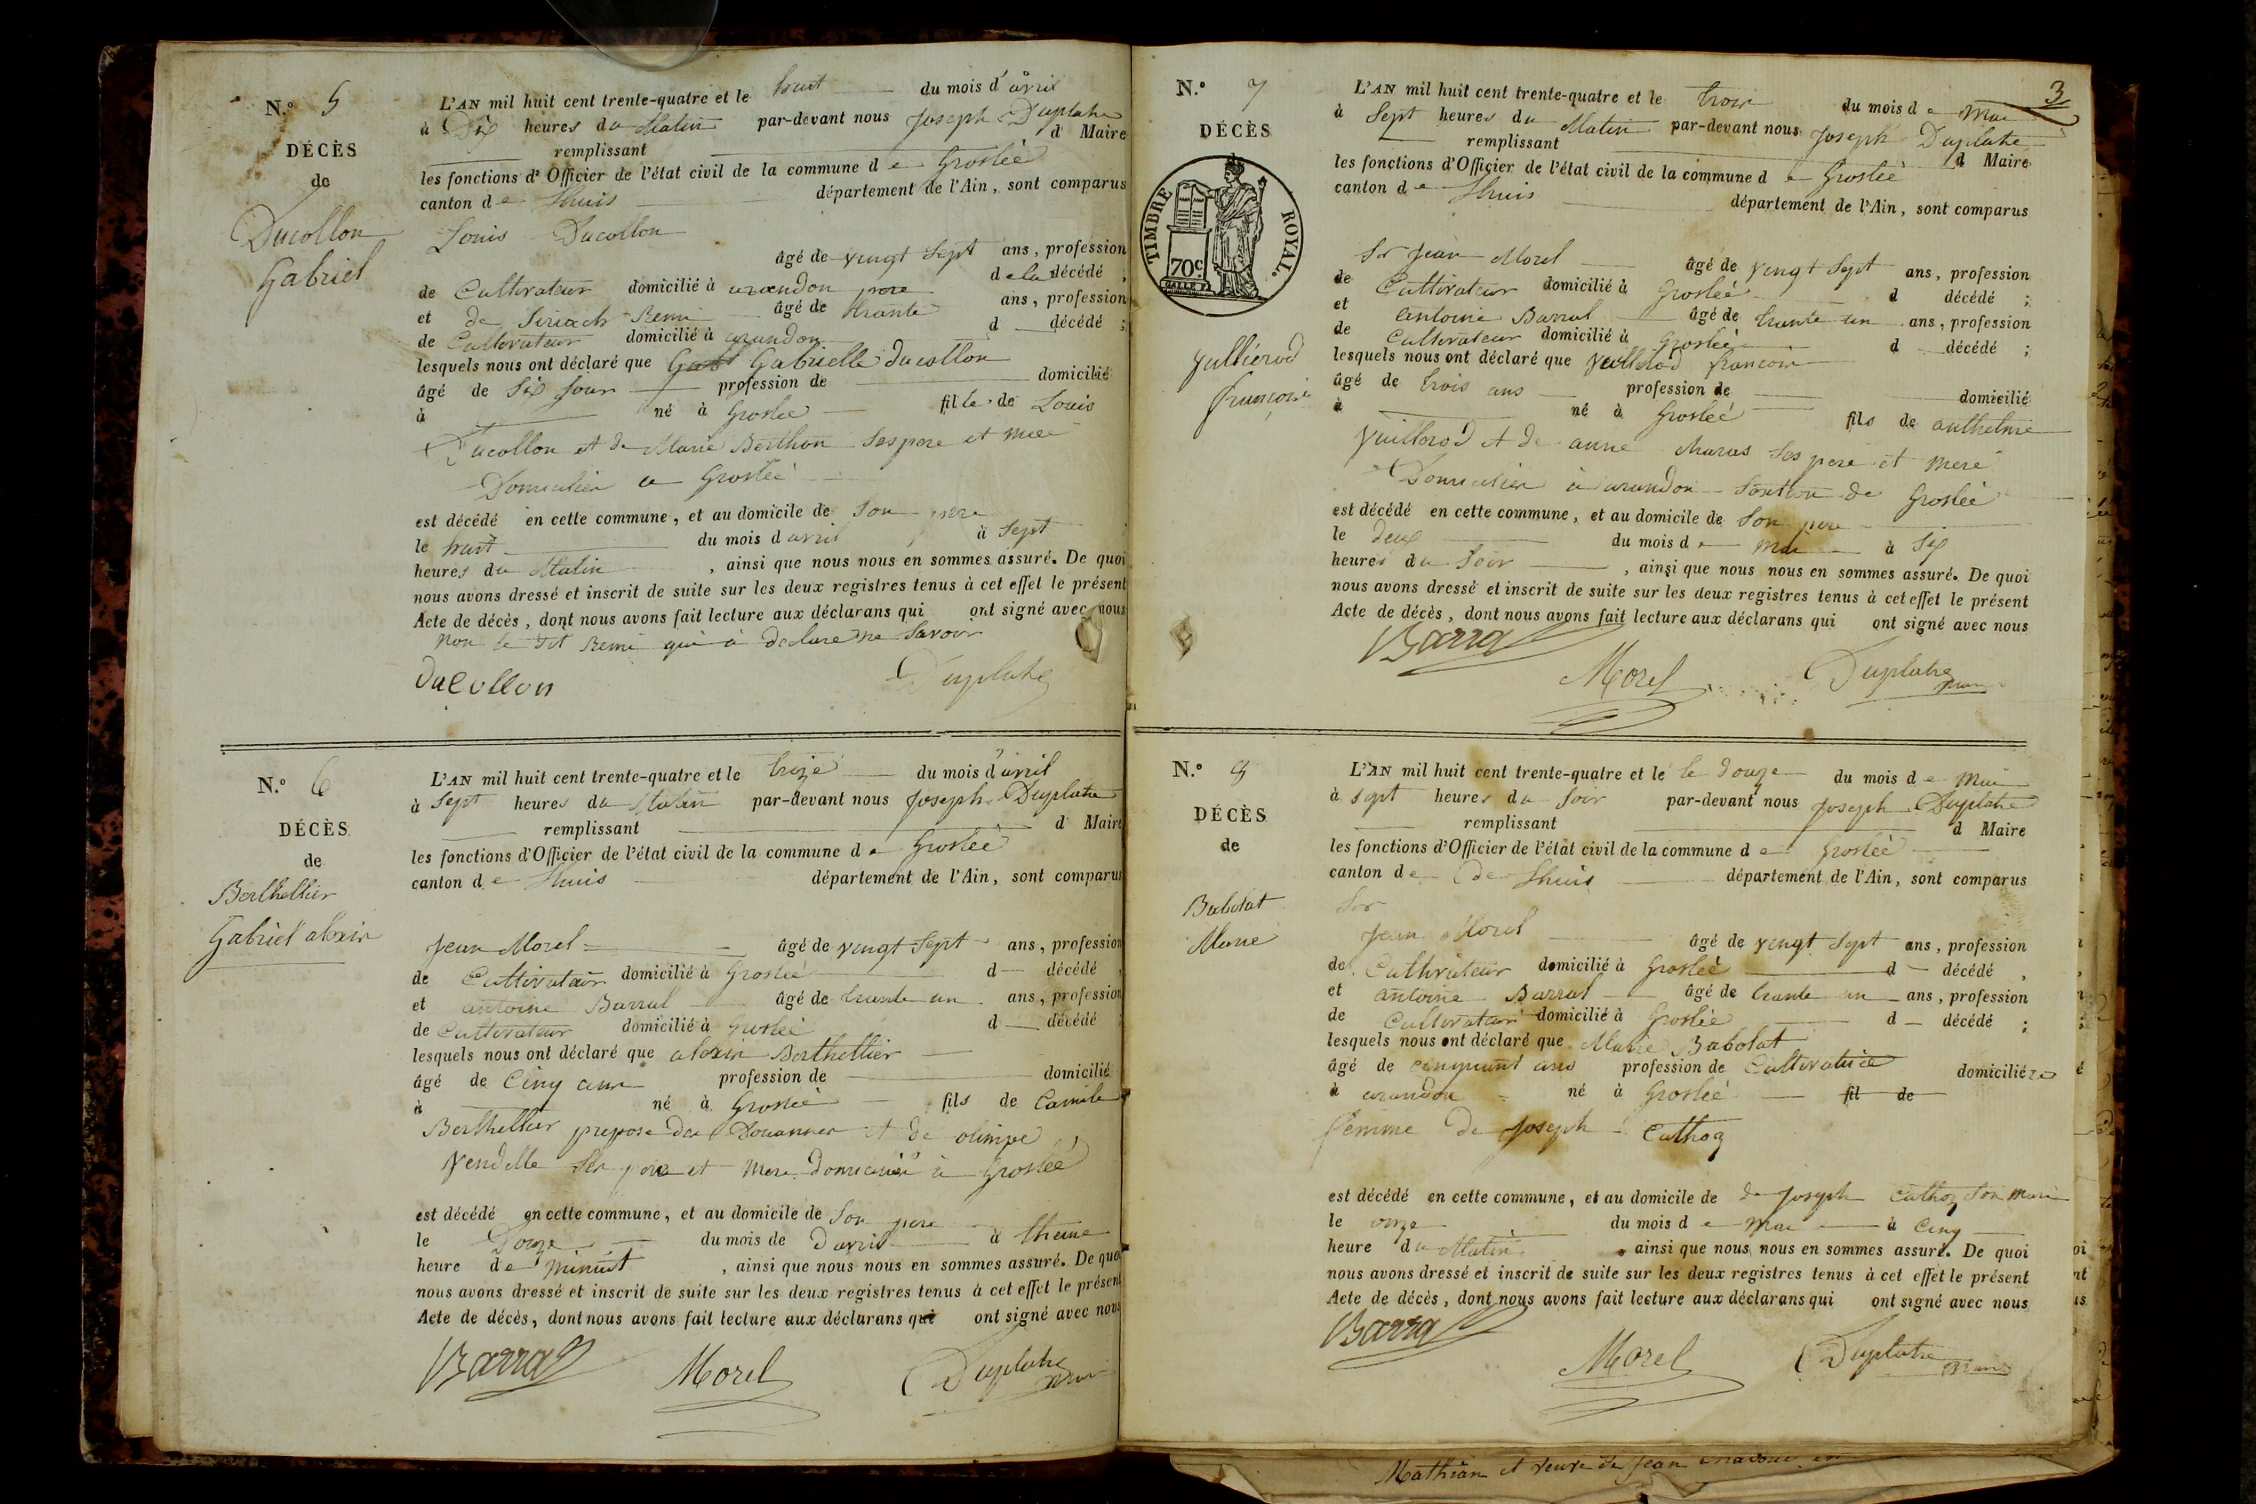 N.° 5
DÉCÈS
de
Ducollon
Gabriel
L'AN mil huit cent trente-quatre et le huit du mois d'avril
à Dix heures du Matin par-devant nous Joseph Duplatre
remplissant d Maire
les fonctions d'Officier de l'état civil de la commune de Groslée
canton de Lhuis département de l'Ain, sont comparus
Louis Ducollon
âgé de vingt sept ans, profession
de Cultivateur domicilié à arandon pere de la décédé ,
et de Siriach Remi âgé de trante ans, profession
de Cultivateur domicilié à arandon d décédé ;
lesquels nous ont déclaré que Gabrielle ducollon
âgé de Six Jour profession de domicilié
à né à Groslée fille de Louis
Ducollon et de Marie Berthon Ses pere et mere
Domicilier a Groslée
est décédé en cette commune, et au domicile de Son pere
le huit du mois d avril à Sept
heures du Matin , ainsi que nous nous en sommes assuré. De quoi
nous avons dressé et inscrit de suite sur les deux registres tenus à cet effet le présent
Acte de décès, dont nous avons fait lecture aux déclarans qui ont signé avec nous
non le dit Remi qui à declare ne Savoir
Ducollon Duplatre
N.° 6
DÉCÈS
de
Berthellier
Gabriel aloxin
L'AN mil huit cent trente-quatre et le treize du mois d'avril
à Sept heures du Matin par-devant nous Joseph Duplatre
remplissant d Maire
les fonctions d'Officier de l'état civil de la commune de Groslée
canton de Lhuis département de l'Ain, sont comparus
Jean Morel âgé de vingt Sept ans, profession
de Cultivateur domicilié à Groslée d décédé ,
et antoine Barral âgé de trante un ans, profession
de Cultivateur domicilié à Groslée d décédé ;
lesquels nous ont déclaré que aloxin Berthellier
âgé de Cinq ans profession de domicilié
à né à Groslée fils de Camile
Berthellier prepose des Douannes et de olimpe
Vendelle Ses pere et Mere domicilié à Groslée
est décédé en cette commune, et au domicile de Son pere
le Douze du mois de Davril à Lheure
heure de Minuit , ainsi que nous nous en sommes assuré. De quoi
nous avons dressé et inscrit de suite sur les deux registres tenus à cet effet le présent
Acte de décès, dont nous avons fait lecture aux déclarans qui ont signé avec nous
Barral Morel Duplatre
N.° 7
DÉCÈS
TIMBRE ROYAL.
70c.
Vulliérod
françois
3
L'AN mil huit cent trente-quatre et le trois du mois de Mai
à Sept heures du Matin par-devant nous Joseph Duplatre
remplissant d Maire
les fonctions d'Officier de l'état civil de la commune de Groslée
canton de Lhuis département de l'Ain, sont comparus
Sr Jean Morel âgé de vingt Sept ans, profession
de Cultivateur domicilié à Groslée d décédé ;
et antoine Barral âgé de trante un ans, profession
de Cultivateur domicilié à Groslée d décédé ;
lesquels nous ont déclaré que Vuillerod francois
âgé de trois ans profession de domicilié
à né à Groslée fils de anthelme
Vuillerod et de anne Maras Ses pere et mere
Domicilier à arandon Section de Groslée
est décédé en cette commune, et au domicile de Son pere
le deux du mois de Mai à Six
heures du Soir , ainsi que nous nous en sommes assuré. De quoi
nous avons dressé et inscrit de suite sur les deux registres tenus à cet effet le présent
Acte de décès, dont nous avons fait lecture aux déclarans qui ont signé avec nous
Barral Morel Duplatre
N.°
DÉCÈS
de
Babolat
Marie
L'AN mil huit cent trente-quatre et le le Douze du mois de Mai
à sept heures du Soir par-devant nous Joseph Duplatre
remplissant d Maire
les fonctions d'Officier de l'état civil de la commune de Groslée
canton de de Lhuis département de l'Ain, sont comparus
Sr
Jean Morel âgé de vingt Sept ans, profession
de Cultivateur domicilié à Groslée d décédé ,
et antoine Barral âgé de trante un ans, profession
de Cultivateur domicilié à Groslée d décédé ;
lesquels nous ont déclaré que Marie Babolat
âgé de cinquant ans profession de Cultivatrice domiciliée
à arandon né à Groslée fil de
femme de Joseph Cathoz
est décédé en cette commune, et au domicile de de Joseph Cathoz Son Mari
le onze du mois de Mai à Cinq
heure du Matin , ainsi que nous nous en sommes assuré. De quoi
nous avons dressé et inscrit de suite sur les deux registres tenus à cet effet le présent
Acte de décès, dont nous avons fait lecture aux déclarans qui ont signé avec nous
Barral Morel Duplatre
Mathian et veuve de Jean